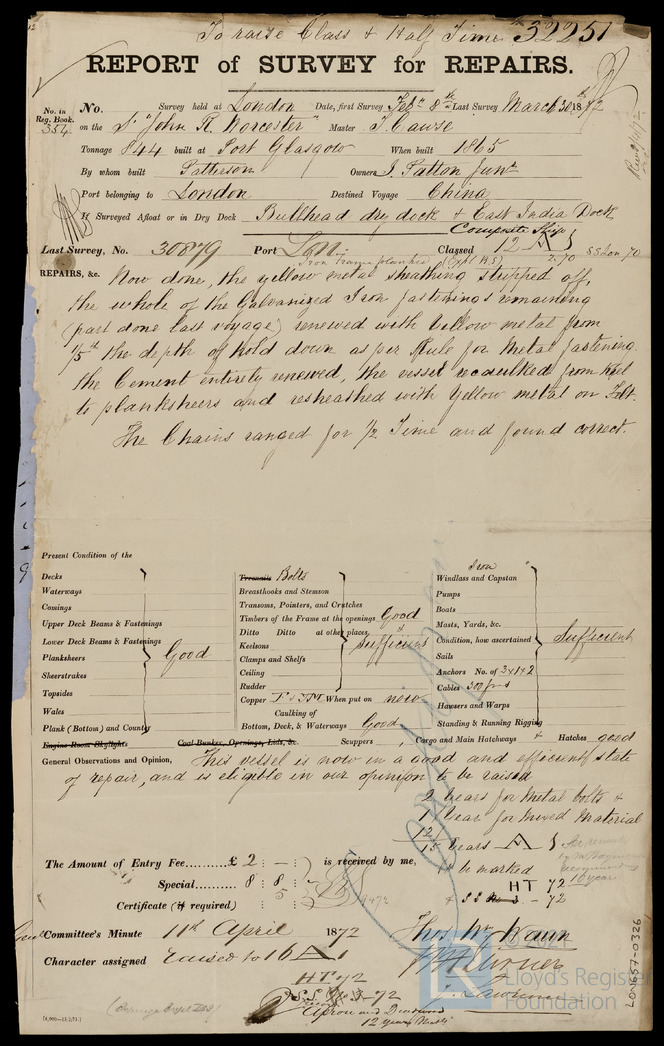 To raise Class & Half Time 32251
REPORT of SURVEY for REPAIRS.
No. in Reg. Book. 354
No. Survey held at London Date, first Survey Feb 8th Last Survey March 30th 1872
on the S. "John R. Worcester" Master T. Cawse
Tonnage 844 built at Port Glasgow When built 1865
By whom built Patterson Owners J. Patton Junr
Port belonging to London Destined Voyage China
If Surveyed Afloat or in Dry Dock Bullhead dry dock & East India Dock
Composite Ship
Last Survey, No. 30879 Port Lon. Classed 12 A 1
Iron frame planked (Expl B.S) 2.70 SS Lon 70
REPAIRS, &c. Now done, the yellow metal sheathing stripped off,
the whole of the Galvanized Iron fastenings remaining
(part done last voyage) renewed with Yellow metal from
1/5th the depth of hold down as per Rule for Metal fastening.
the Cement entirely renewed, the vessel recaulked from keel
to planksheers and resheathed with Yellow metal on Felt.
The Chains ranged for 1/2 Time and found correct.
Present Condition of the
Decks
Waterways
Comings
Upper Deck Beams & Fastenings
Lower Deck Beams & Fastenings
Planksheers Good
Sheerstrakes
Topsides
Wales
Plank (Bottom) and Counter
Engine Room Skylights Coal Bunker, Openings, Lids, &c.
Treenails Bolts
Breasthooks and Stemson
Transoms, Pointers, and Crutches
Timbers of the Frame at the openings Good
Ditto Ditto at other places &
Keelsons sufficient
Clamps and Shelfs
Ceiling
Rudder
Copper When put on new
Caulking of
Bottom, Deck, & Waterways Good
Iron
Windlass and Capstan
Pumps
Boats
Masts, Yards, &c.
Condition, how ascertained Sufficient
Sails
Anchors No. of 3 & 1 & 2
Cables 300 fms
Hawsers and Warps
Standing & Running Rigging
Scuppers, Cargo and Main Hatchways & Hatches good
General Observations and Opinion, This vessel is now in a good and efficient state
of repair, and is eligible in our opinion to be raised
2 Years for Metal bolts &
1 Year for Mixed Material
12
15 Years A 1
to be marked
HT 72
& SS - 72
The Amount of Entry Fee.........£ 2 : — : is received by me,
Special........ 8 : 8 :
Certificate (if required) : 5 :
Committee's Minute 11th April 1872
Thos. W. Wawn
Character assigned raised to 16 A 1
HT 72
S.S. - 72
Apron and Deadwood
12 years
© 2021
Lloyd's Register
Foundation
LON657-0326